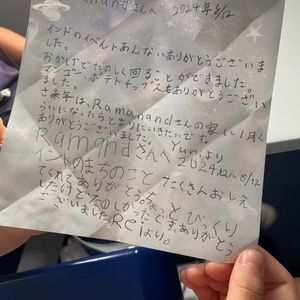 Ramandさんへ 2024年8/12
インドのイベントあんないありがとうございま
した。
おかげでたのしく回ることができました。
マンゴー、ポテトチップスもありがとうござい
ました。
き来年は、Ramanandさんの家に1月く
らいになったらとまりにいきたいです。
ありがとうございました。Yuriより
Ramandさんへ 2024ねん8/12
インドのまちのこと たくさんおしえ
てくれてありがとう。ちょっとびっくり
したけどたのしかったですありがとう
ございましたREIより。